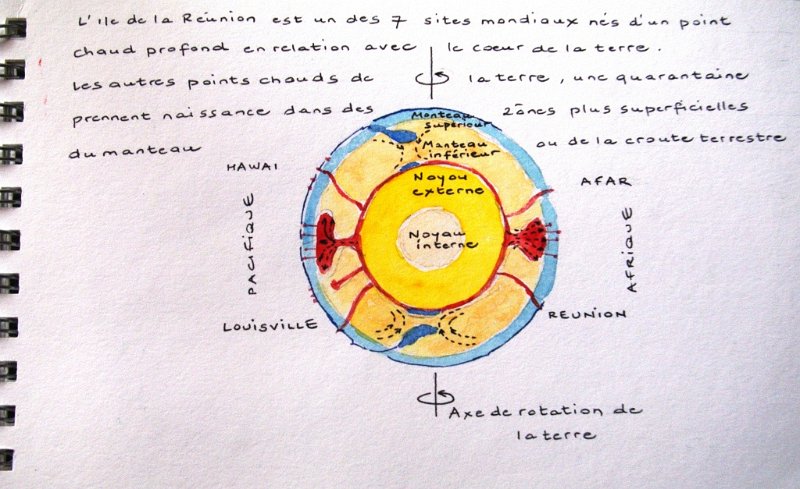 L'île de la Réunion est un des 7 sites mondiaux nés d'un point
chaud profond en relation avec le coeur de la terre.
Les autres points chauds de la terre, une quarantaine
prennent naissance dans des zônes plus superficielles
du manteau ou de la croute terrestre
Manteau
supérieur
Manteau
inférieur
Noyau
externe
Noyau
interne
HAWAI
PACIFIQUE
LOUISVILLE
AFAR
AFRIQUE
REUNION
Axe de rotation de
la terre